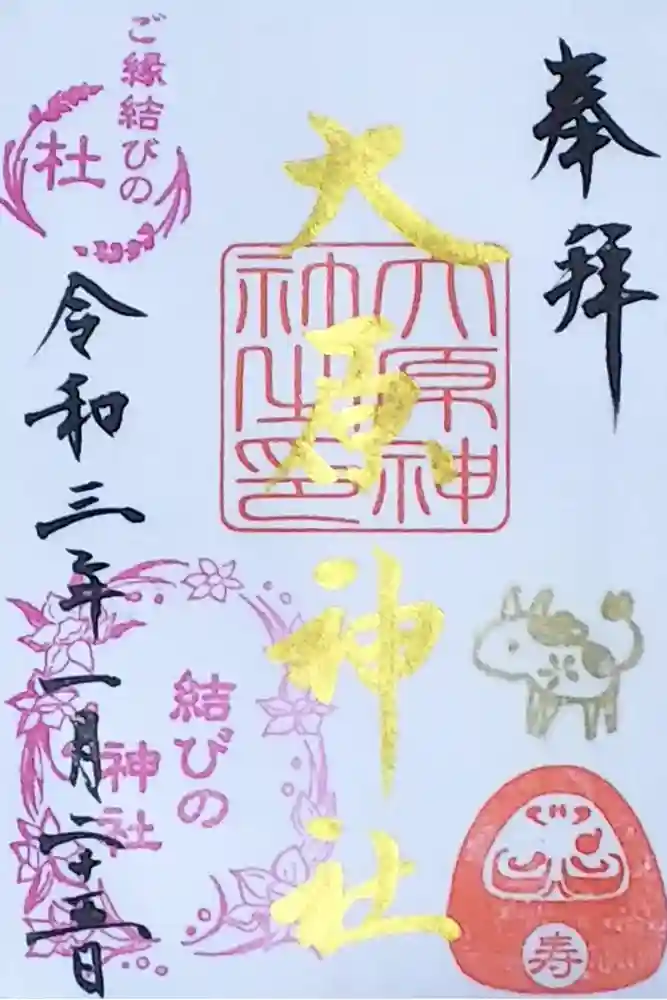 奉拝
大原神社
大原神
社之印
ご縁結びの
杜
令和三年一月二十五日
結びの
神社
寿